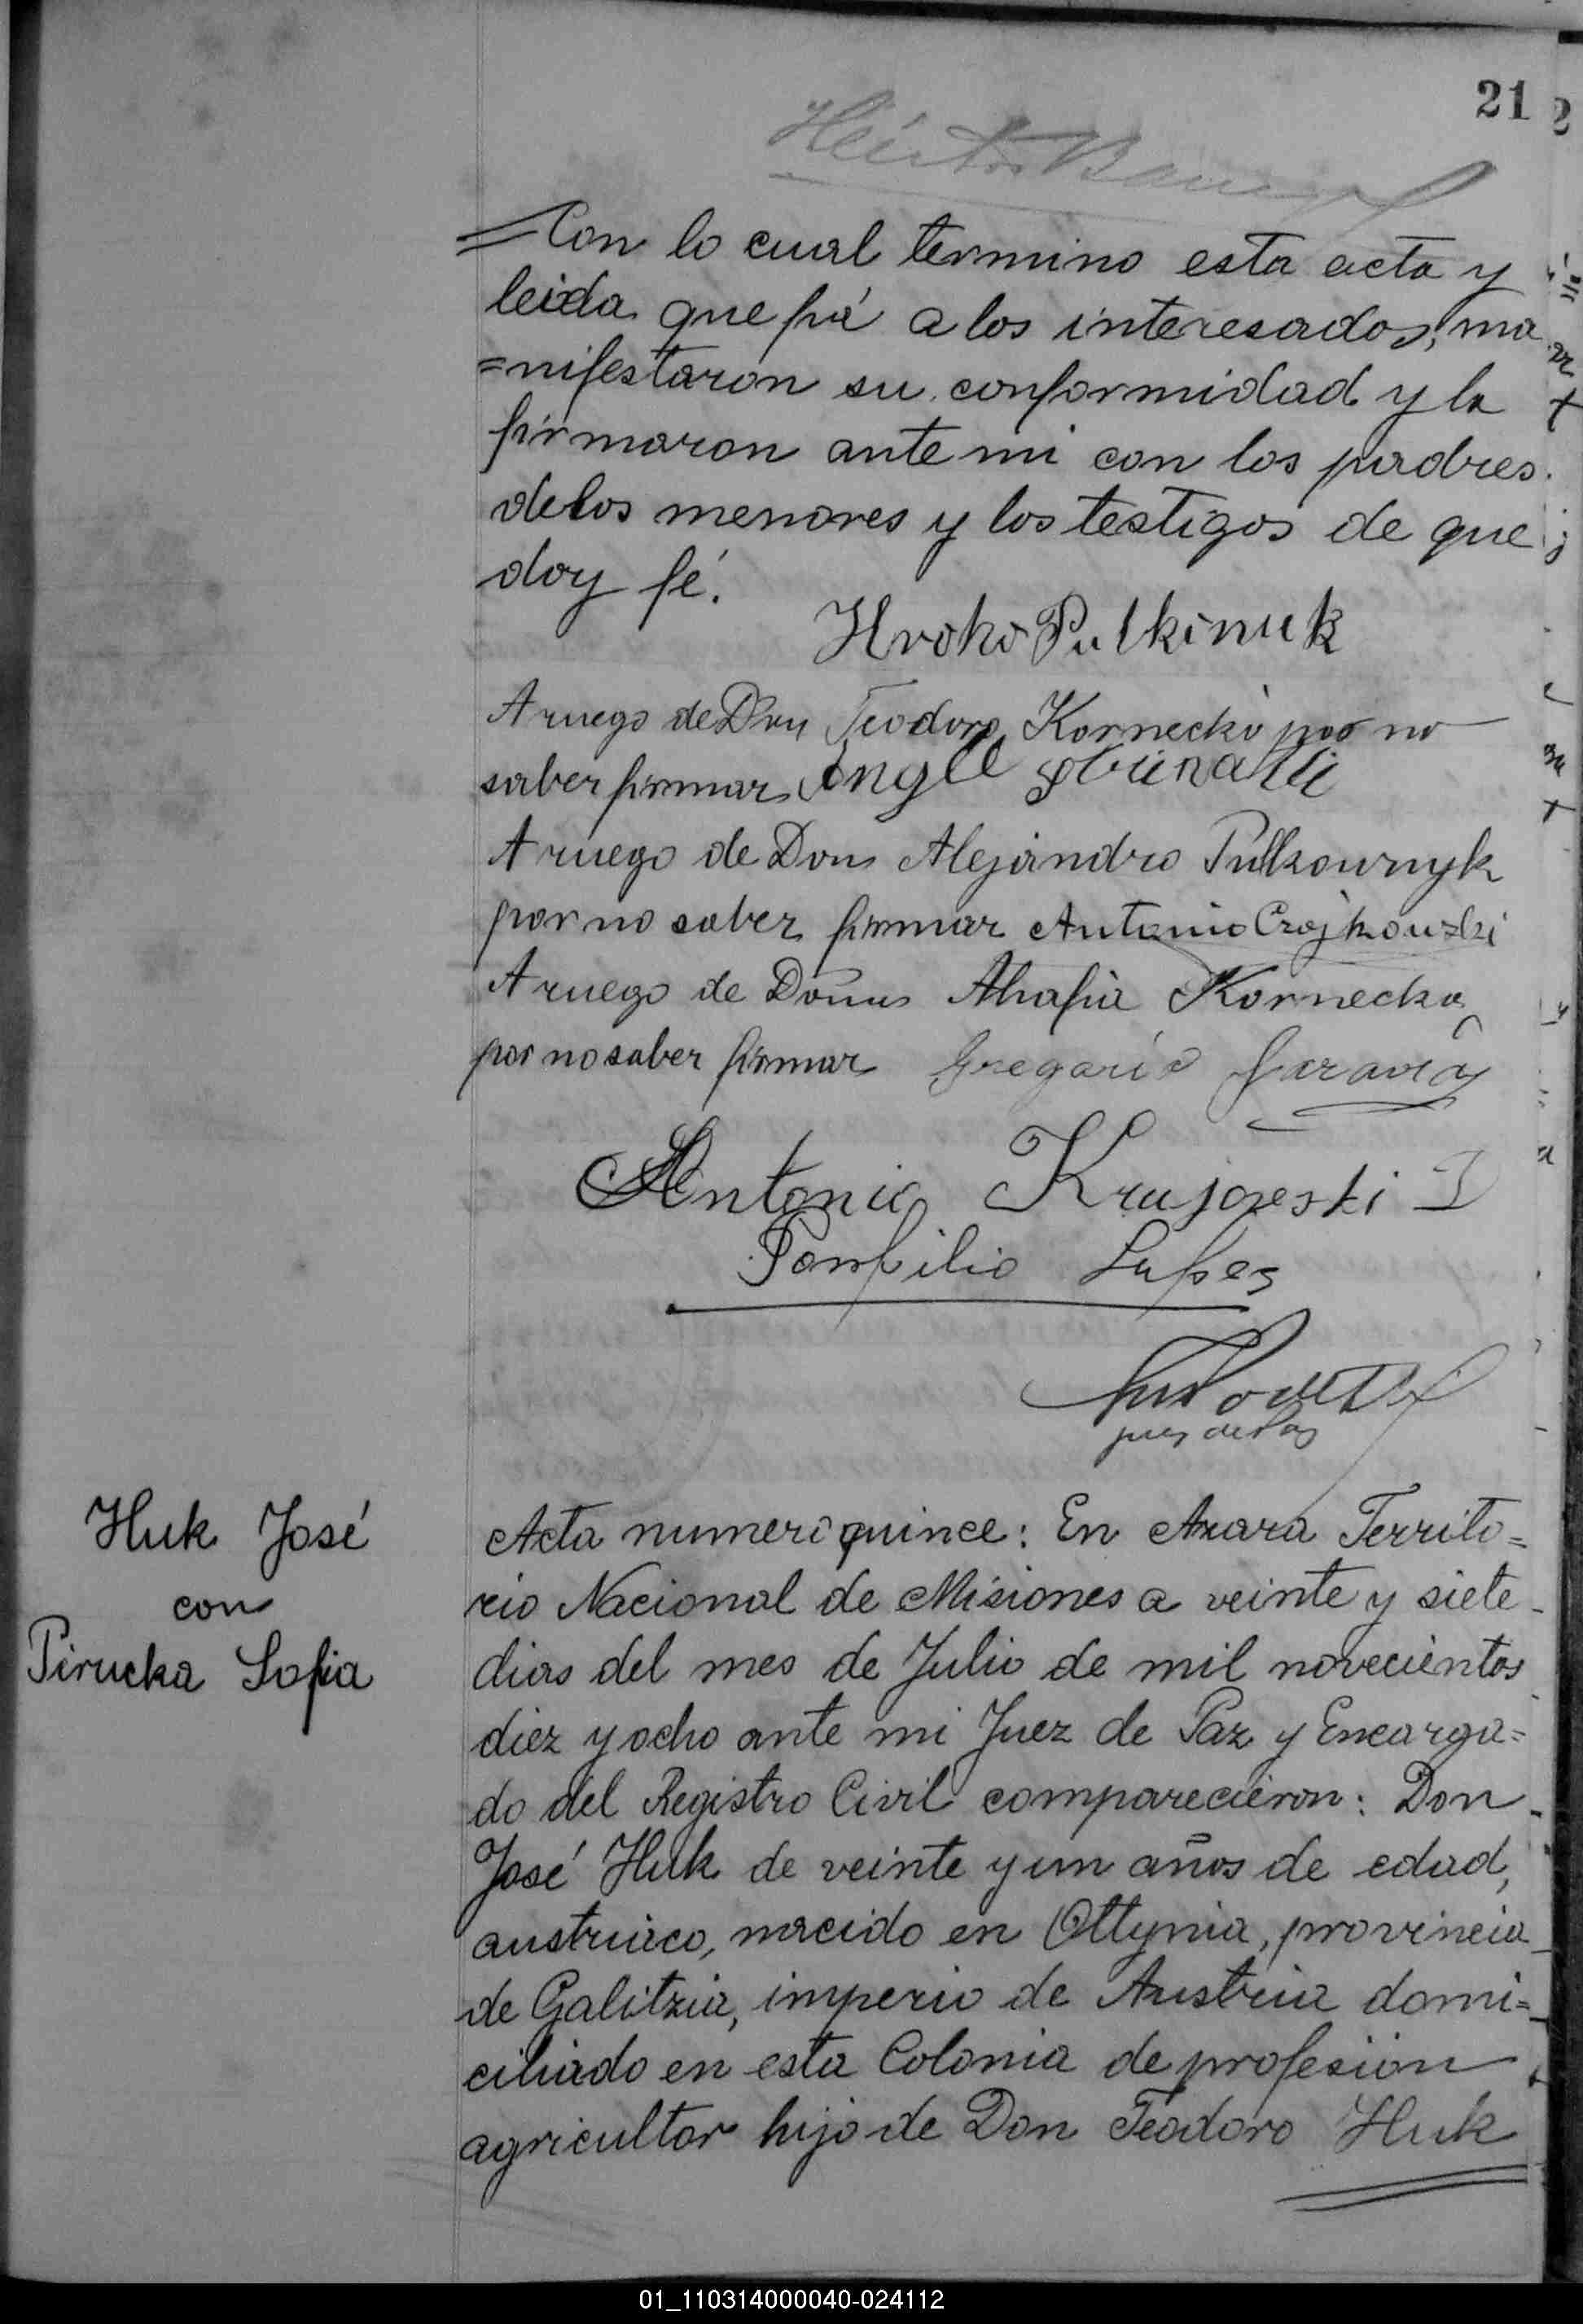 21
Héctor
=Con lo cual termino esta acta y
leida que fué a los interesados, ma
=nifestaron su conformidad y la
firmaron ante mi con los padres
de los menores y los testigos de que
doy fé.
Hroko Pulkinuk
A ruego de Don Teodoro Kornecki por no
saber firmar Angel
A ruego de Don Alejandro Pulkownyk
por no saber firmar Antonio Czajkowski
A ruego de Doña Ahafia Kornecka
por no saber firmar Gregario Garavia
Antonio Krujoreski
Pomfilio Lopes
juez de Paz
Huk José
con
Pirucka Sofia
Acta numero quince: En Azara Territo=
rio Nacional de Misiones a veinte y siete
dias del mes de Julio de mil novecientos
diez y ocho ante mi Juez de Paz y Encarga=
do del Registro Civil comparecieron: Don
José Huk de veinte y un años de edad,
austriaco, nacido en Ottynia, provincia
de Galitzia, imperio de Austria domi=
ciliado en esta Colonia de profesión
agricultor hijo de Don Teodoro Huk
01_110314000040-024112